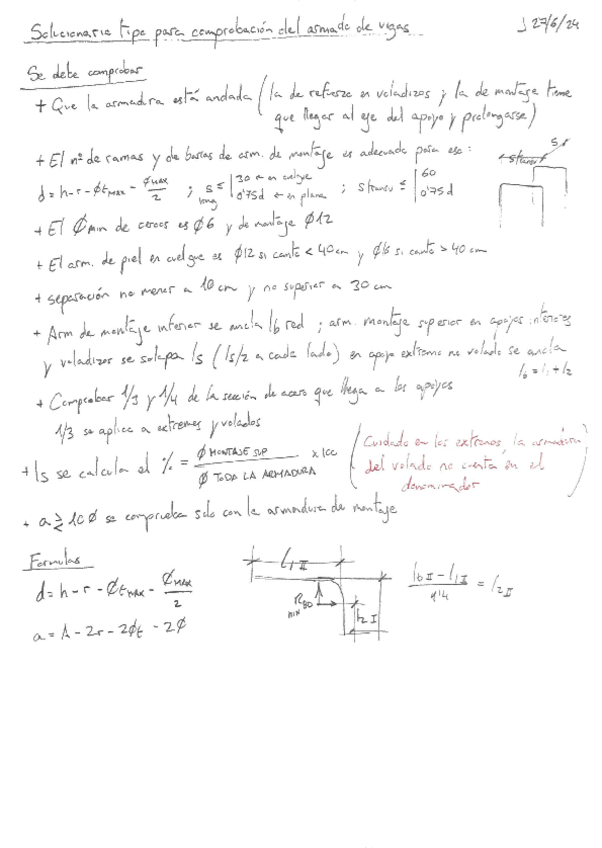 Solucionario tipo para comprobación del armado de vigas J 27/6/24
Se debe comprobar
+ Que la armadura está anclada (la de refuerzo en voladizos y la de montaje tiene
que llegar al eje del apoyo y prolongarse)
+ El nº de ramas y de barras de arm. de montaje es adecuado para eso:
d = h - r - Øt max - Ømax/2 ; s long ≤ | 30 ← en cuelgue | 0'75d ← en plana ; s transv ≤ | 60 | 0'75d
s transv s
+ El Ø min de cercos es Ø6 y de montaje Ø12
+ El arm. de piel en cuelgue es Ø12 si canto < 40cm y Ø16 si canto > 40 cm
+ separación no menor a 10 cm y no superior a 30 cm
+ Arm de montaje inferior se ancla lb red ; arm. montaje superior en apoyos interiores
y voladizos se solapa ls (ls/2 a cada lado) en apoyo extremo no volado se ancla
lb = l1 + l2
+ Comprobar 1/3 y 1/4 de la sección de acero que llega a los apoyos
1/3 se aplica a extremos y volados
+ ls se calcula el % = Ø MONTAJE SUP / Ø TODA LA ARMADURA x 100
(Cuidado en los extremos, la armadura
del volado no cuenta en el
denominador)
+ a ≥ 10Ø se comprueba solo con la armadura de montaje
Formulas
d = h - r - Øt max - Ømax/2
a = A - 2r - 2Øt - 2Ø
l1 II
l2 I
lb II - l1 II / 1'4 = l2 II